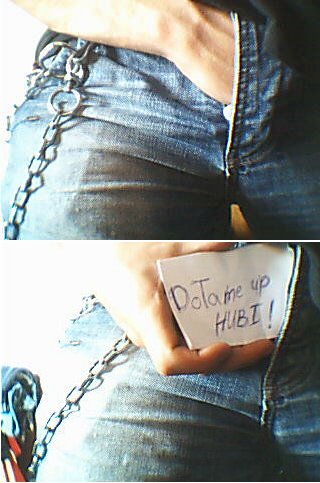 DoTa me up
HUBI!